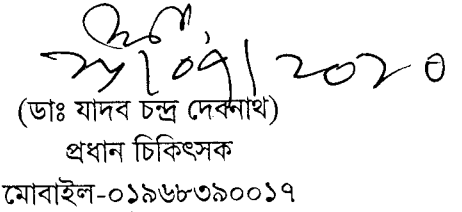 (ডাঃ যাদব চন্দ্র দেবনাথ)
প্রধান চিকিৎসক
মোবাইল-০১৯৬৮৩৯০০১৭